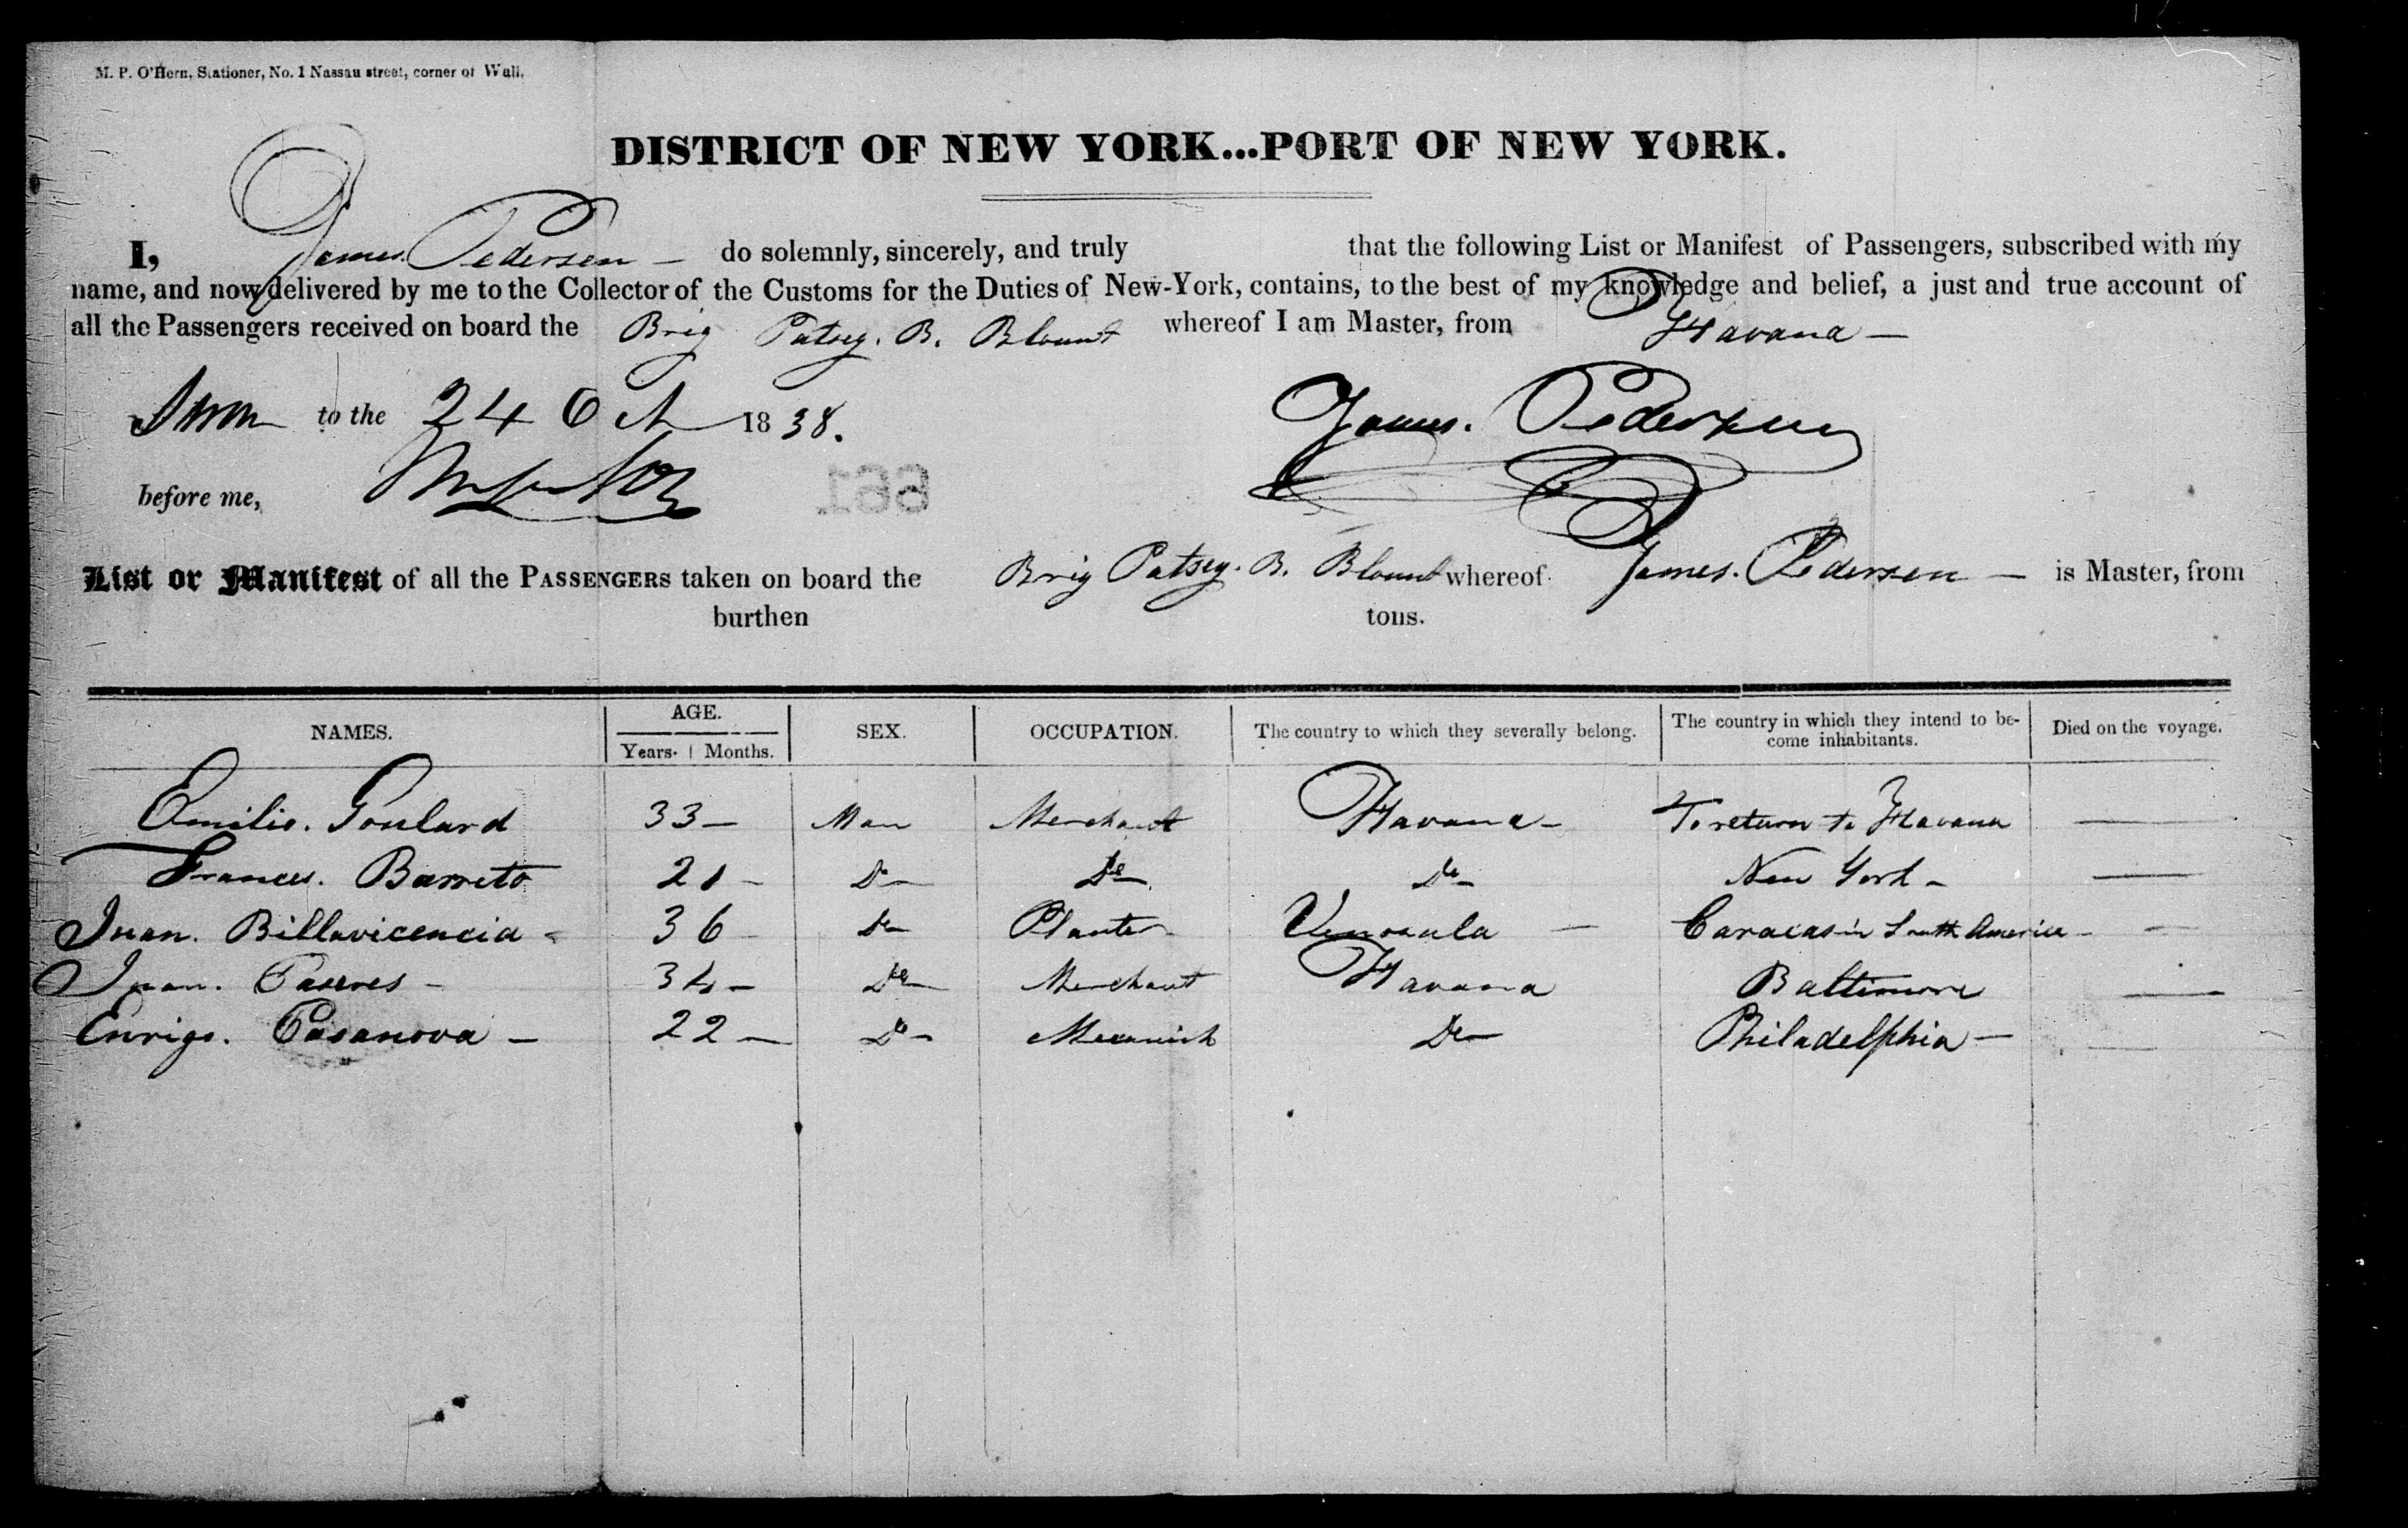 M. P. O'Hern, Stationer, No. 1 Nassau street, corner of Wall.
DISTRICT OF NEW YORK...PORT OF NEW YORK.
I, James. Pedersen — do solemnly, sincerely, and truly that the following List or Manifest of Passengers, subscribed with my
name, and now delivered by me to the Collector of the Customs for the Duties of New-York, contains, to the best of my knowledge and belief, a just and true account of
all the Passengers received on board the Brig Patsey. B. Blount whereof I am Master, from Havana —
Sworn to the 24 Oct 1838.
James. Pedersen
before me,
661
List or Manifest of all the PASSENGERS taken on board the Brig Patsey. B. Blount whereof James. Pedersen — is Master, from
burthen tons.
NAMES. AGE. Years. Months. SEX. OCCUPATION. The country to which they severally belong. The country in which they intend to become inhabitants. Died on the voyage.
Emilio. Goulard 33 — Man Merchant Havana — To return to Havana —
Frances. Barreto 21 — Do Do Do New York — —
Juan. Billavicencia - 36 - Do Planter Venosula — Caracas in South America — —
Juan. 34 — Do Merchant Havana Baltimore —
Enrigo. Casanova — 22 — Do Do Philadelphia — —